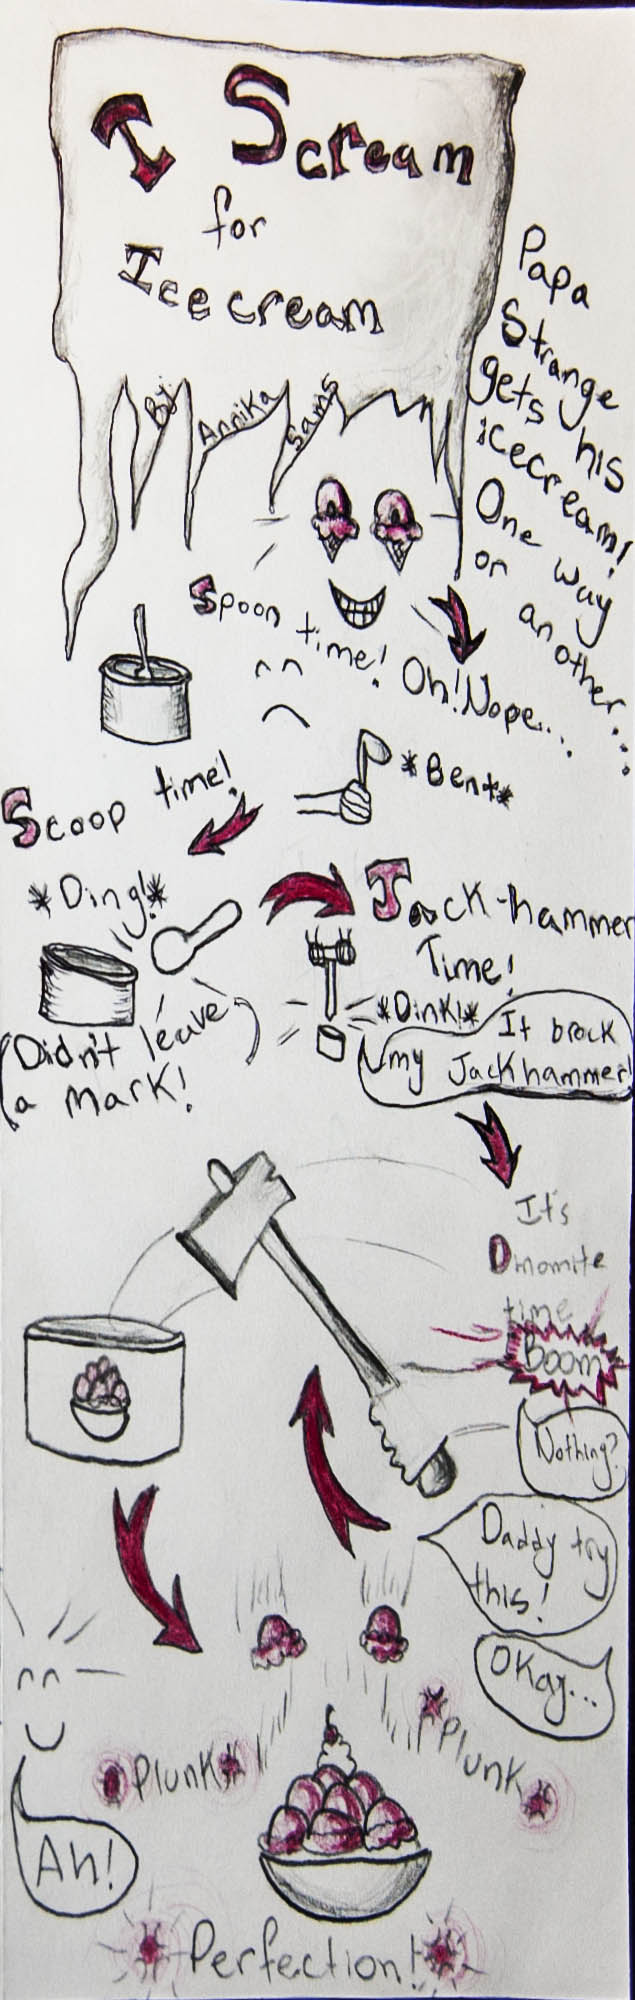 I Scream
for
Ice cream
By: Annika Sams
Papa
Strange
gets his
icecream!
One way
or another...
Spoon time! Oh! Nope...
*Bent*
Scoop time!
*Ding!*
Didn't leave
a mark!
Jack-hammer
Time!
*Dink!*
It brock
my Jackhammer!
It's
Dinomite
time
Boom
Nothing?
Daddy try
this!
Okay...
Plunk
Plunk
Ah!
Perfection!